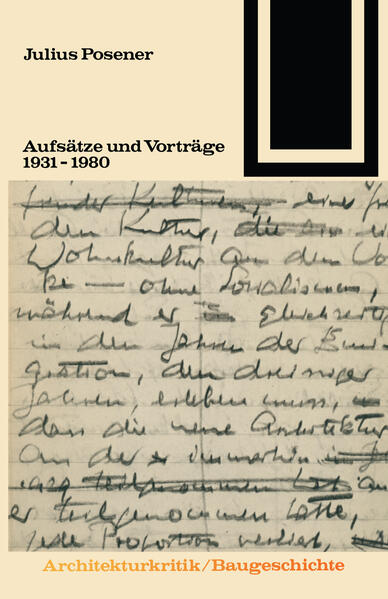 Julius Posener
Aufsätze und Vorträge
1931 - 1980
Kulturen, einer
den Kultur, die
Wohnkultur an dem
ke — ohne Sozialismus,
während er gleichzeitig
in den Jahren der Emi-
gration, den dreissiger
Jahren, erleben muss,
dass die neue Architektur
an der immerhin in
teilgenommen hat an
er teilgenommen hatte,
jede Proportion verliert,
Architekturkritik/Baugeschichte